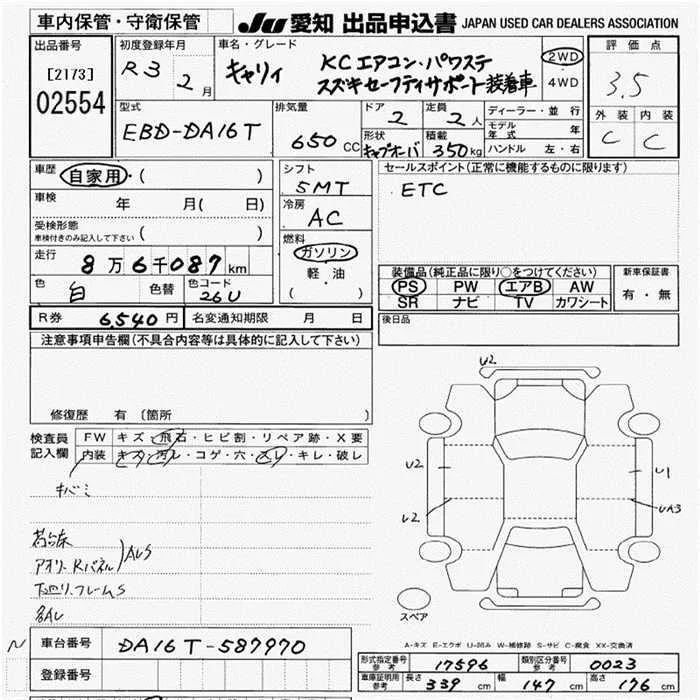 車内保管・守衛保管 JU 愛知 出品申込書 JAPAN USED CAR DEALERS ASSOCIATION
出品番号 [2173] 02554
初度登録年月 R3 2月
車名・グレード キャリィ KCエアコン・パワステ
スズキセーフティサポート装着車
2WD 4WD
評価点 3.5
外装 内装
C C
型式 EBD-DA16T
排気量 650 CC
ドア 2 定員 2人
形状 キャブオーバ 積載 350 kg
ディーラー・並行
モデル年式 年
ハンドル 左・右
車歴 自家用・( )
車検 年 月( 日)
受検形態 車検付きのみ記入して下さい ( )
走行 8万6千087km
色 白 色替 色コード 26U
シフト 5MT
冷房 AC
燃料 ガソリン
軽油
( )
セールスポイント(正常に機能するものに限ります)
ETC
装備品(純正品に限り○をつけてください)
PS PW エアB AW
SR ナビ TV カワシート
新車保証書
有・無
R券 6,540円 名変通知期限 月 日
後日品
注意事項申告欄(不具合内容等は具体的に記入して下さい)
修復歴 有 〔箇所 〕
検査員記入欄
FW キズ・飛石・ヒビ割・リペア跡・X要
内装 キズ・汚レ・コゲ・穴・スレ・キレ・破レ
キバミ
荷台床
アオリ、Rパネル AUS
下回リ、フレームS
各AU
U2
U2
U2
U1
UA3
スペア
A-キズ E-エクボ U-凹み W-補修跡 S-サビ C-腐食 XX-交換済
N 車台番号 DA16T-587970
登録番号
形式指定番号 参考 17596 類別区分番号 参考 0023
車庫証明用 参考 長さ 339 cm 幅 147 cm 高さ 176 cm